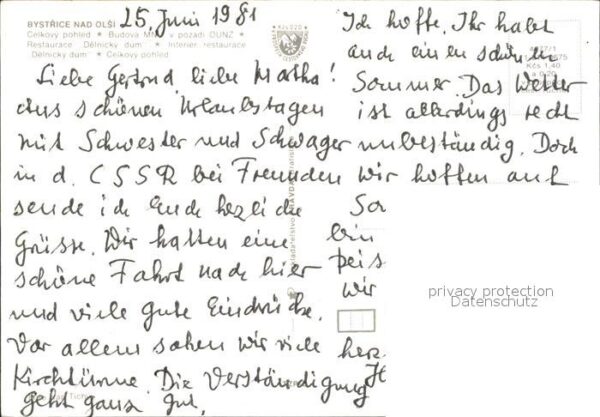 BYSTŘICE NAD OLŠÍ
Celkový pohled * Budova MNV v pozadí DÚNZ *
Restaurace „Dělnický dům" * Interiér restaurace
„Dělnický dům" * Celkový pohled
25. Juni 1981
Liebe Gertrud, liebe Martha!
Aus schönen Urlaubstagen
mit Schwester und Schwager
in d. CSSR bei Freunden
sende ich Euch herzliche
Grüsse. Wir hatten eine
schöne Fahrt nach hier
und viele gute Eindrücke.
Vor allem sahen wir viele
Kirchtürme. Die Verständigung
geht ganz gut.
Ich hoffe, Ihr habt
auch einen schönen
Sommer. Das Wetter
ist allerdings recht
unbeständig. Doch
wir hoffen auf
So
bin
Wir
herz
Kčs 1,40
privacy protection
Datenschutz